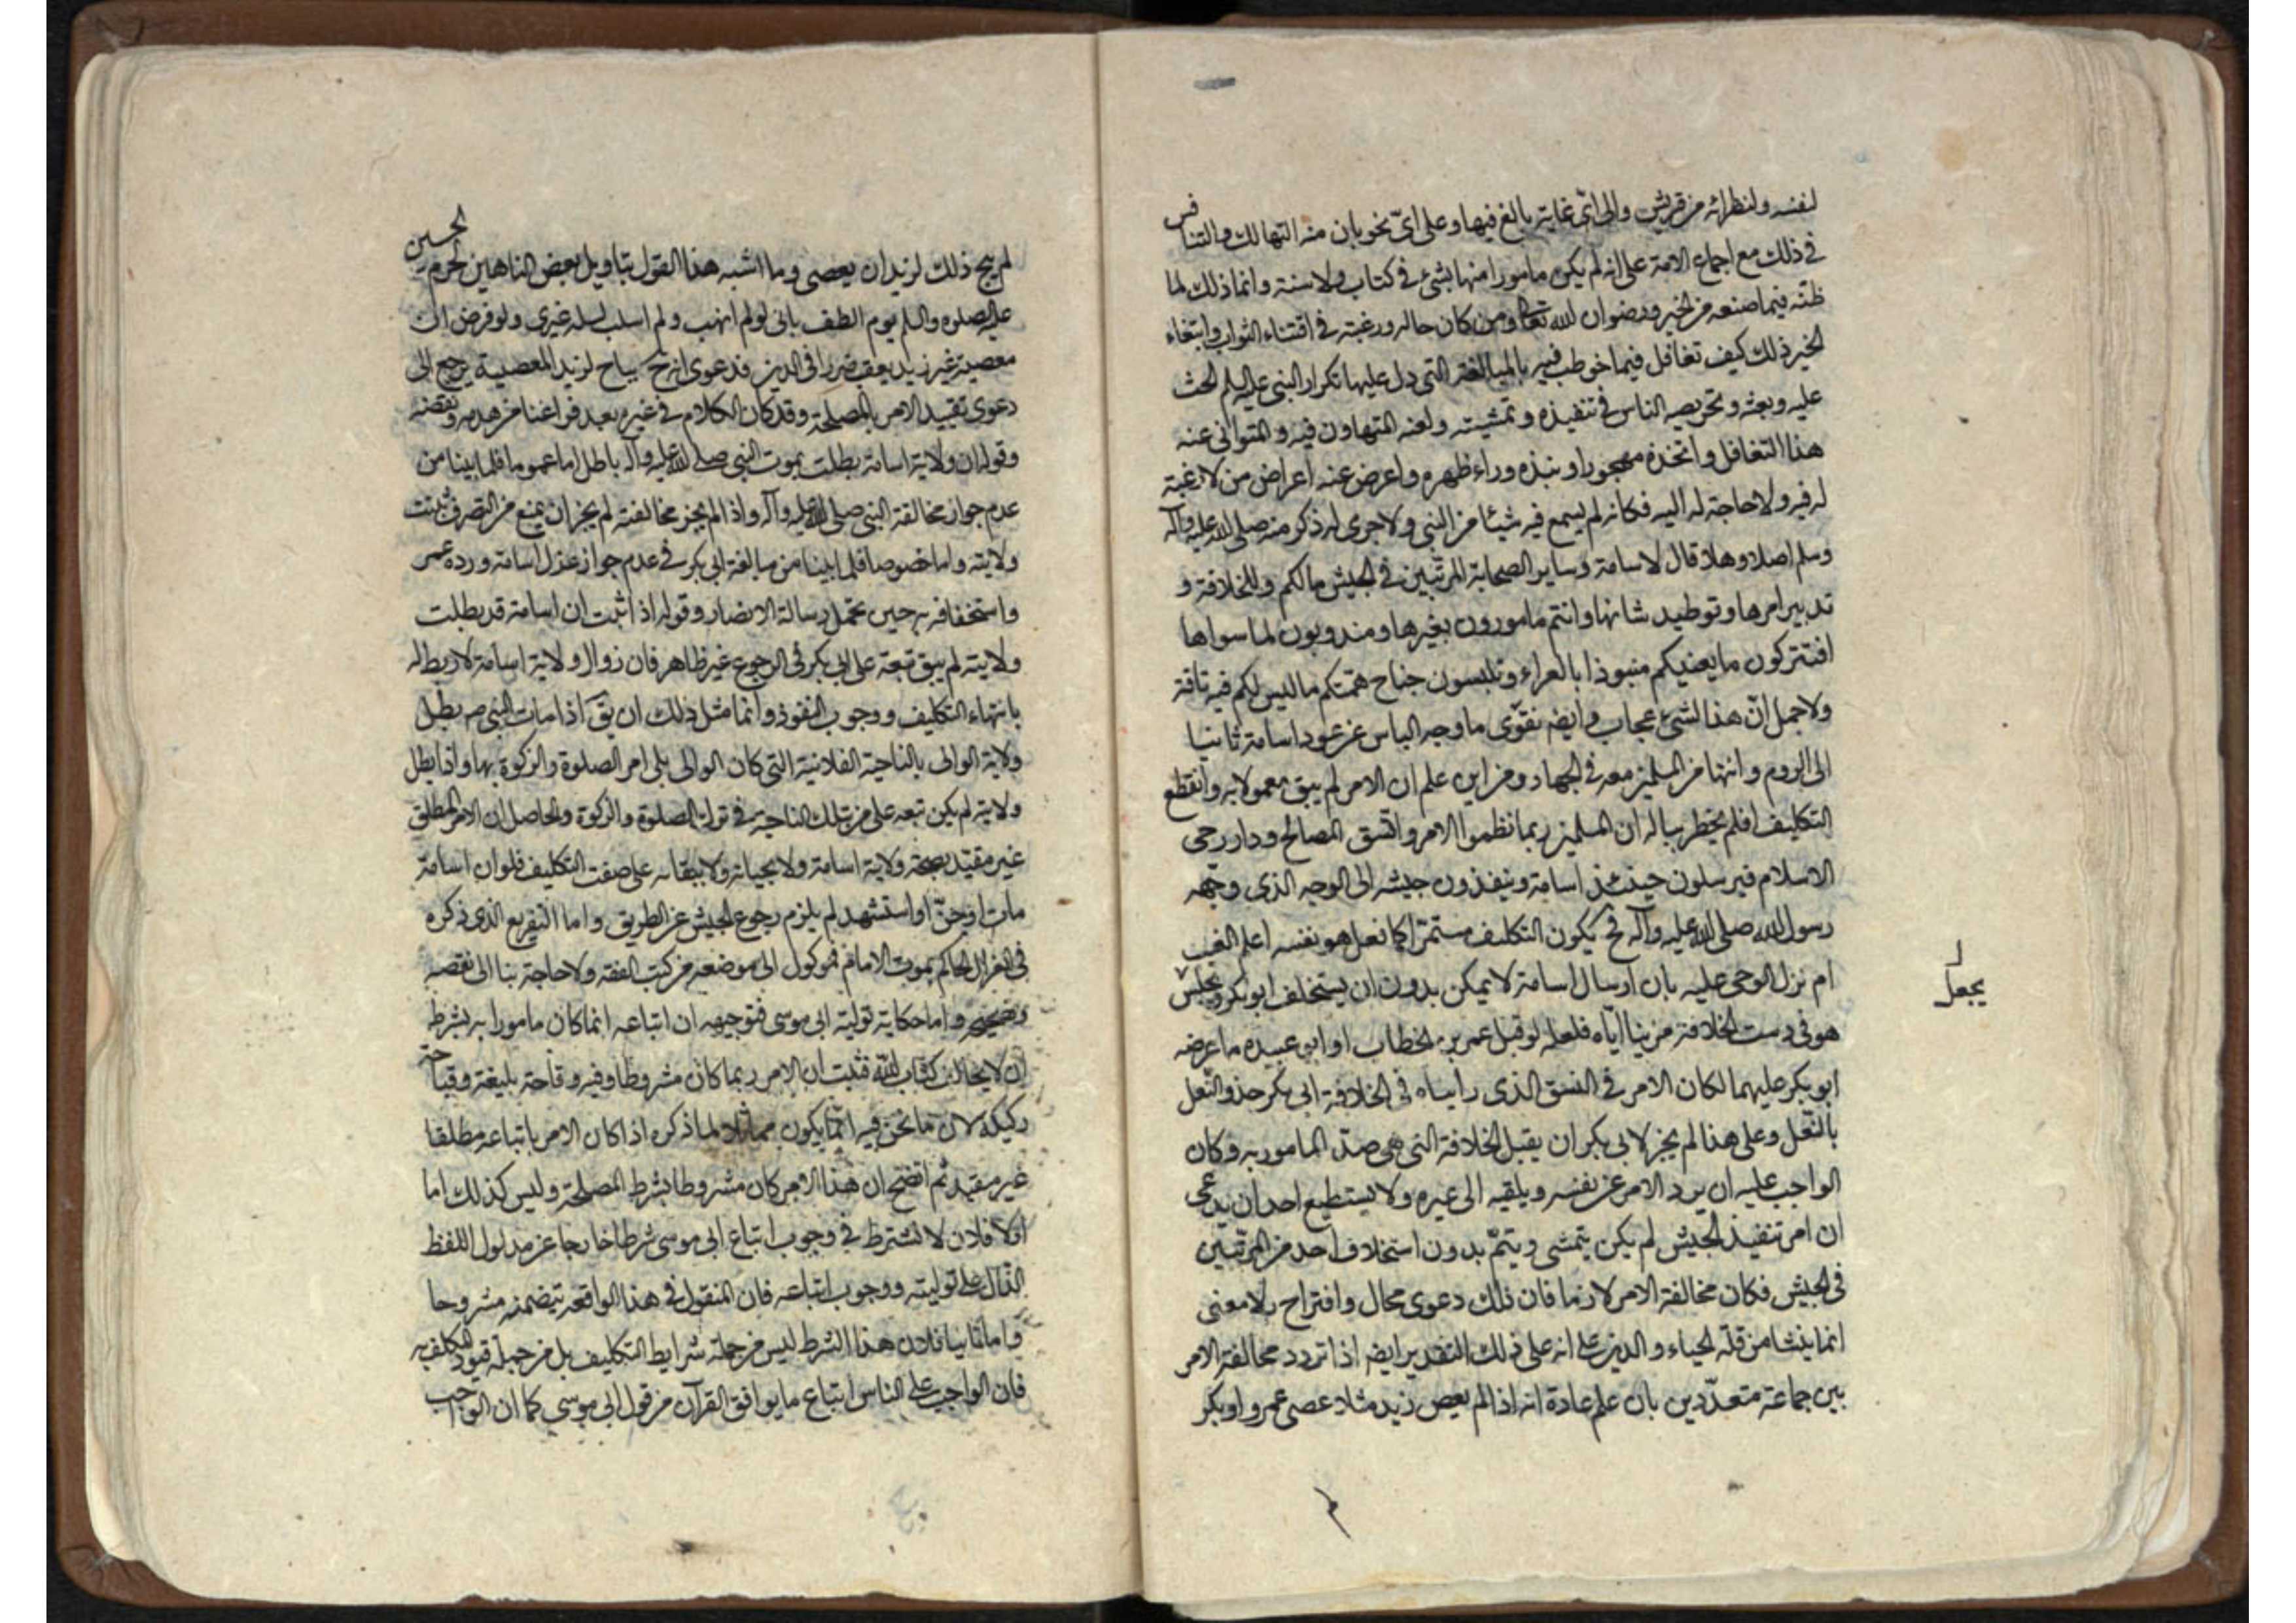 لنفسه ولنظرائه من قريش والى اىّ غاية بالغ فيها وعلى اىّ نحو بان منه التهالك والتنافس
فى ذلك مع اجماع الامة على انه لم يكن مامورا منها بشئ فى كتاب ولا سنة وانما ذلك لما
ظنّه فيما صنعه من الخير ورضوان الله تعالى ومن كان حاله ورغبته فى اقتناء الثواب وابتغاء
الخير ذلك كيف تغافل فيما خوطب فيه بالمبالغة التى دل عليها تكرار النبى عليه السلم الحث
عليه وبعثه وتحريصه الناس فى تنفيذه وتمشيته ولعنه المتهاون فيه والمتوانى عنه
هذا التغافل واتخذه مهجورا ونبذه وراء ظهره واعرض عنه اعراض من لا رغبة
له فيه ولا حاجة له اليه فكانه لم يسمع فيه شيئا من النبى ولا جرى له ذكر منه صلى الله عليه وآله
وسلم اصلا وهلا قال لاسامة وساير الصحابة المرتّبين فى الجيش مالكم وللخلافة و
تدبير امرها وتوطيد شانها وانتم مامورون بغيرها ومندوبون لما سواها
افتتركون ما يعنيكم منبوذا بالعراء وتلبسون جناح همتكم ما ليس لكم فيه ناقة
ولا جمل انّ هذا لشئ عجاب وايضه نقوّى ما وجه الياس عن عود اسامة ثانيا
الى الروم وانتها من المسلمين معه فى الجهاد ومن اين علم ان الامر لم يبق معمولا به وانقطع
التكليف افلم يخطر بباله ان المسلمين ربما نظموا الامر واتّسق المصالح ودار رحى
الاسلام فيرسلون حينئذ اسامة وينفذون جيشه الى الوجه الذى وجّهه
رسول الله صلى الله عليه وآله فح يكون التكليف مستمرّا كما نعل هو نفسه اعلم الغيب
ام نزل الوحى عليه بان ارسال اسامة لا يمكن بدون ان يستخلف ابو بكر ويجلس
يجعل
هو فى دست الخلافة من بينا ايّاه فلعله لو قبل عمر بن الخطاب او ابو عبيده ما عرضه
ابو بكر عليهما لكان الامر فى النسق الذى رايناه فى الخلافة ابى بكر حذو النّعل
بالنّعل وعلى هذا لم يجز لابى بكر ان يقبل الخلافة التى هى ضدّ المامور به وكان
الواجب عليه ان يرد الامر عن نفسه ويلقيه الى غيره ولا يستطيع احد ان يدعى
ان امر تنفيذ الجيش لم يكن يتمشى ويتمّ بدون استخلاف احد من المرتّبين
فى الجيش فكان مخالفة الامر لازما فان ذلك دعوى محال واقتراح بلا معنى
انما ينشا من قلّة الحياء والدين على انه على ذلك التقدير ايضه اذا تردد مخالفة الامر
بين جماعة متعدّدين بان علم عادة انه اذا لم يعص زيد مثلا عصى عمرو او بكر
لم يبح ذلك لزيد ان يعصى وما اشبه هذا القول بتاويل بعض الناهبين لحرم الحسين
عليه الصلوة والسلم يوم الطف بانى لو لم انهب ولم اسلب لسلبه غيرى ولو فرض ان
معصية غير زيد يعقب ضررا فى الدين فدعوى انه ح يباح لزيد المعصية يرجع الى
دعوى تقييد الامر بالمصلحة وقد كان الكلام فى غيره بعد فراغنا من هدمه ونقضه
وقوله ان ولاية اسامة بطلت بموت النبى صلى الله عليه وآله باطل اما عموما فلما بينا من
عدم جواز مخالفة النبى صلى الله عليه وآله واذا لم يجز مخالفته لم يجز ان يمنع من التصرف ثبتت
ولايته واما خصوصا فلما بينا من مبالغة ابى بكر فى عدم جواز عزل اسامة ورده عمر
واستخفافه به حين تحمل رسالة الانصار وقوله اذا ثبت ان اسامة قد بطلت
ولايته لم يبق تبعة على ابى بكر فى الرجوع غير ظاهر فان زوال ولاية اسامة لا ربط له
بانتهاء التكليف ووجوب النفوذ وانما مثل ذلك ان يقَ اذا مات النبى ص بطل
ولاية الوالى بالناحية الفلانية التى كان الوالى يلى امر الصلوة والزكوة بها واذا بطل
ولايته لم يكن تبعه على من بتلك الناحيه فى ترك الصلوة والزكوة والحاصل ان الامر المطلق
غير مقيّد بصحة ولاية اسامة ولا بحياته ولا ببقائه على صفت التكليف فلو ان اسامة
مات او جنّ او استشهد لم يلزم رجوع الجيش عن الطريق واما التفريع الذى ذكره
فى انعزال الحاكم بموت الامام فموكول الى موضعه من كتب الفقه ولا حاجة بنا الى نقضه
واما حكاية تولية ابى موسى فتوجيهه ان اتباعه انما كان مامورا به بشرط
ان لا يخالف كتاب الله فثبت ان الامر ربما كان مشروطا وفيه وقاحة بليغة وقباحة
ركيكه لان ما نحن فيه انّما يكون مماثلا لما ذكره اذا كان الامر باتباعه مطلقا
غير مقيد ثم اتضح ان هذا الامر كان مشروطا بشرط المصلحة وليس كذلك اما
اولا فلان لا نشترط فى وجوب اتباع ابى موسى شرطا خارجا عن مدلول اللفظ
الدّال على توليته ووجوب اتباعه فان المنقول فى هذا الواقعه يتضمنه مشروحا
واما ثانيا فلان هذا الشرط ليس من جملة شرايط التكليف بل من جملة قيود المكلف به
فان الواجب على الناس اتباع ما يوافق القرآن من قول ابى موسى كما ان الواجب